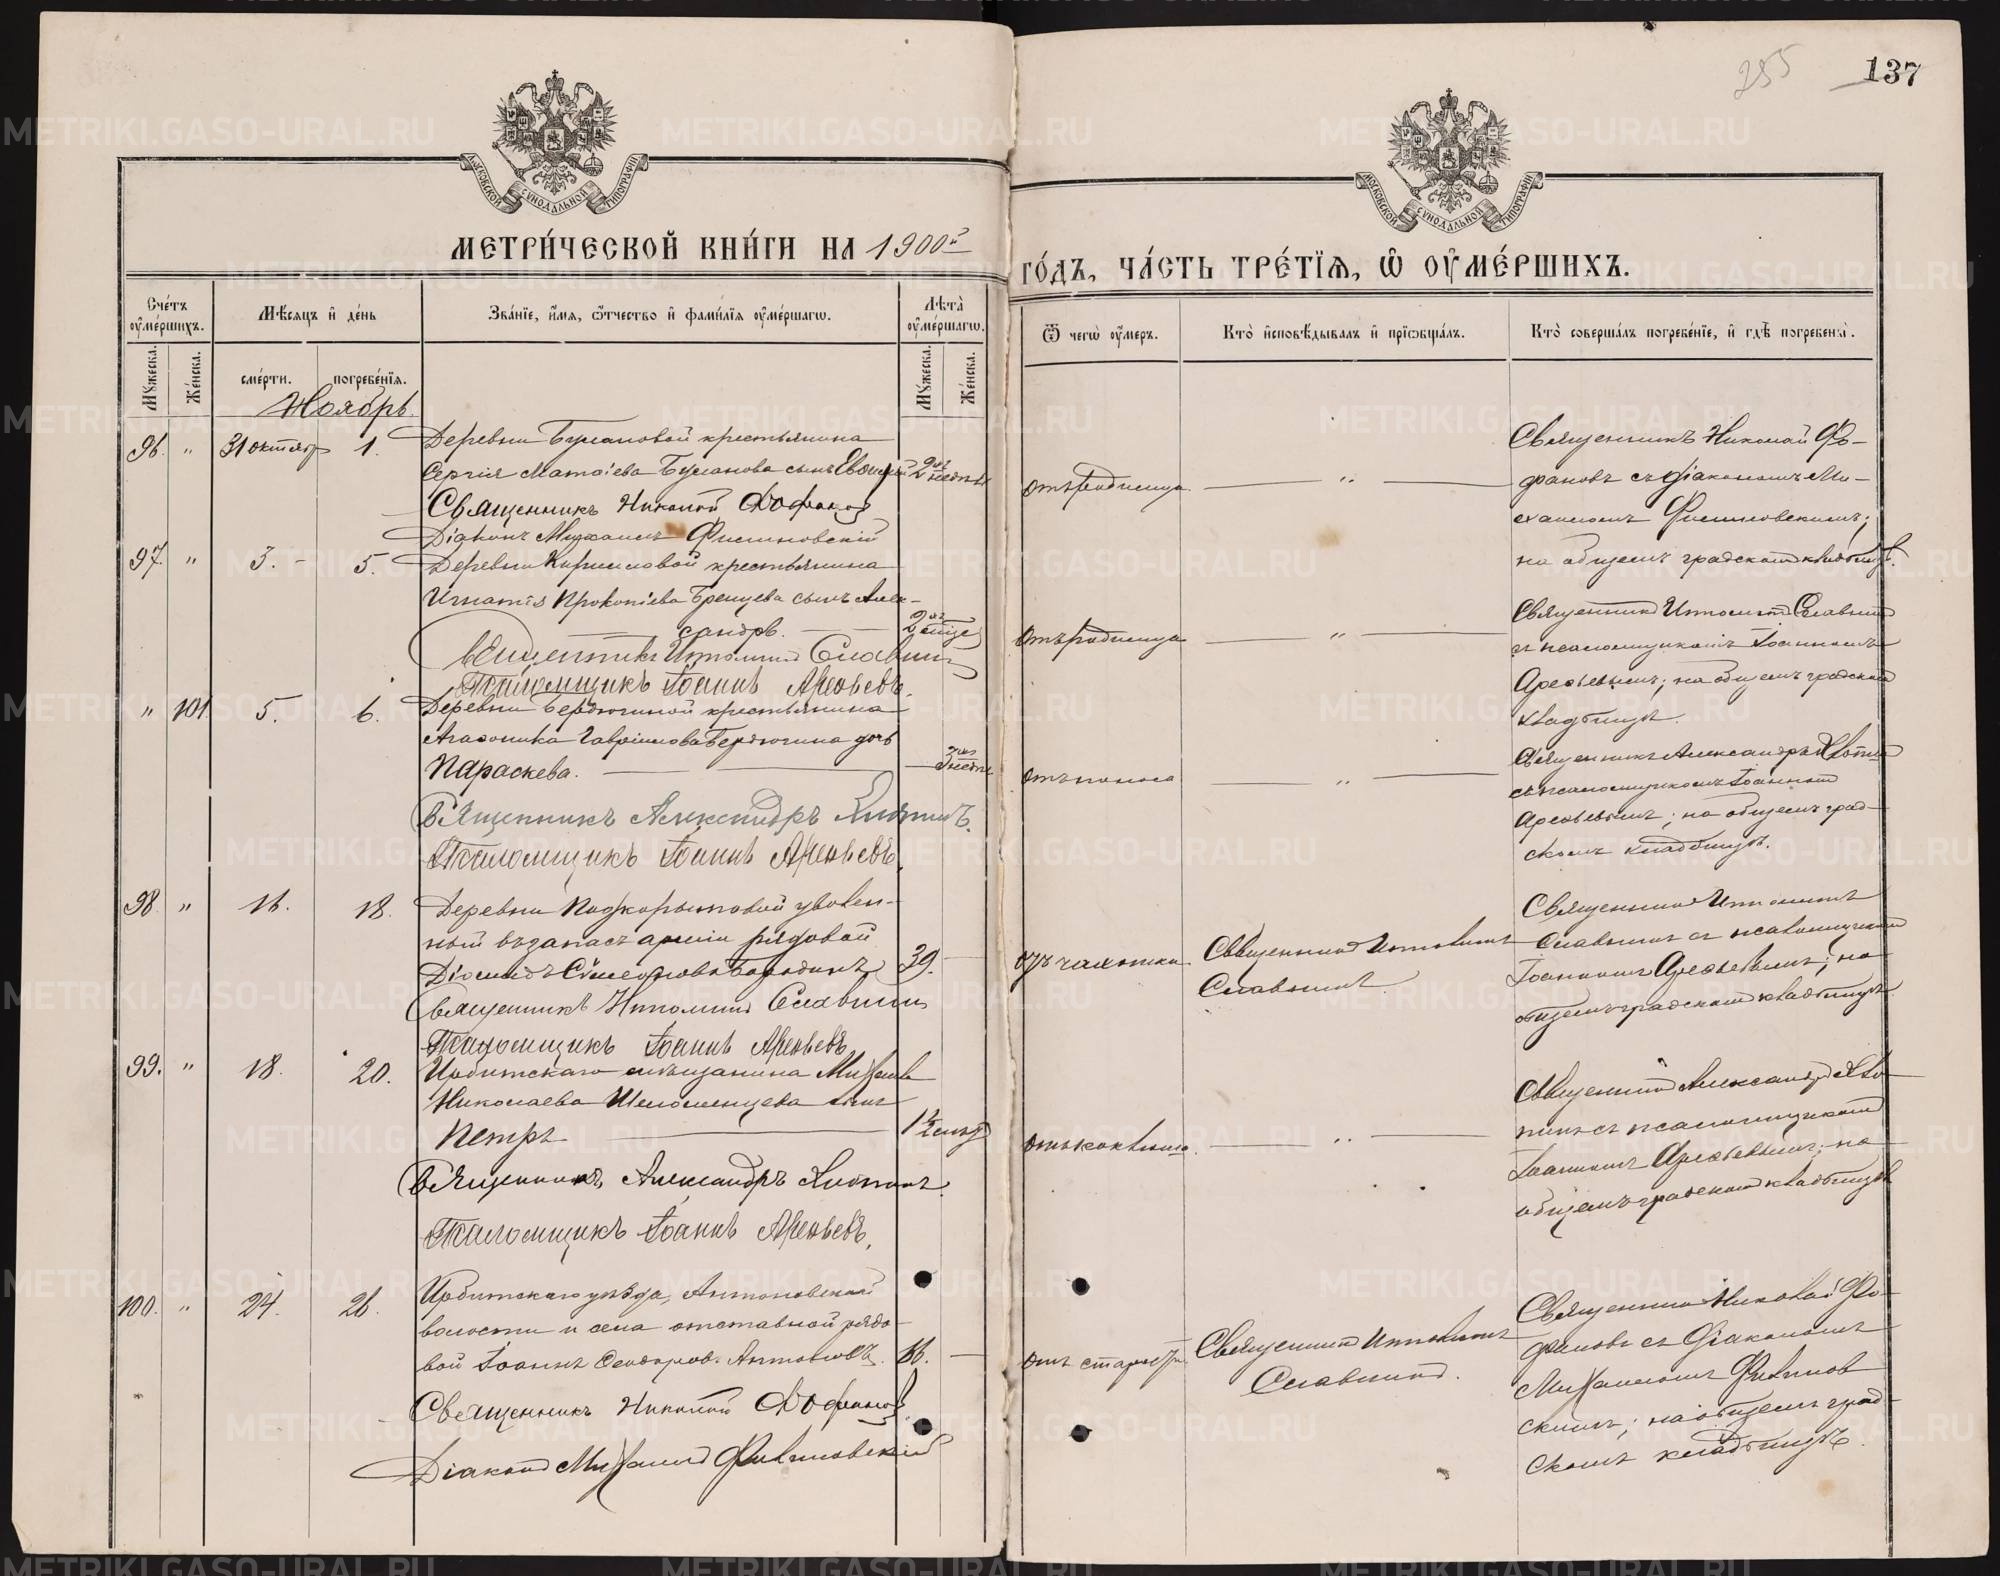 255
137
МОСКОВСКОЙ СѴНОДАЛЬНОЙ ТИПОГРАФІИ
МОСКОВСКОЙ СѴНОДАЛЬНОЙ ТИПОГРАФІИ
МЕТРИ́ЧЕСКОЙ КНИ́ГИ НА 1900й
ГО́ДЪ, ЧА́СТЬ ТРЕ́ТІѦ, Ѿ ОУ҆МЕ́РШИХЪ.
Сче́тъ оу҆ме́ршихъ.
Мꙋ́жеска.
Же́нска.
Мѣ́сяцъ и҆ де́нь
сме́рти.
погребе́нїѧ.
Зва́нїе, и҆́мѧ, ѻ҆́тчество и҆ фами́лїѧ оу҆ме́ршагѡ.
Лѣ́та оу҆ме́ршагѡ.
Мꙋ́жеска.
Же́нска.
Ѿ чегѡ̀ оу҆́меръ.
Кто̀ и҆сповѣ́дывалъ и҆ прїѡбща́лъ.
Кто̀ соверша́лъ погребе́нїе, и҆ гдѣ̀ погребены̀.
Ноябрь.
96. " 31 октябр 1.
Деревни Булановой крестьянина
Сергія Матѳіева Буланова сынъ
Священникъ Николай Фофанов
Діаконъ Михаилъ Филиновскій
отъ родимца "
Священникъ Николай Фо-
фановъ съ діакономъ Ми-
хаиломъ
на общемъ градском кладбищѣ.
97. " 3. - 5.
Деревни Кирилловой крестьянина
Игнатія Прокопіева сынъ Алек-
сандръ.
Священникъ Ипполитъ Славнин
Псаломщикъ Іоаннъ Арефьевъ.
отъ родимца "
Священник Ипполит Славнин
съ псаломщикомъ Іоанномъ
Арефьевымъ; на общемъ градском
кладбищѣ.
" 101. 5. 6.
Деревни Бердюгиной крестьянина
Агаѳоника Гавріилова Бердюгина дочь
Параскева.
Священникъ Александръ
Псаломщикъ Іоаннъ Арефьевъ.
отъ поноса "
Священникъ Александръ
съ псаломщикомъ Іоанном
Арефьевымъ; на общемъ град-
скомъ кладбищѣ.
98. " 16. 18. 39.
Деревни Подкорытовой уволен-
ный въ запасъ арміи рядовой
Діомидъ Сѵмеоновъ
Священникъ Ипполит Славнин
Псаломщикъ Іоаннъ Арефьевъ
отъ чахотки
Священник Ипполитъ
Славнинъ.
Священник Ипполитъ
Славнинъ съ псаломщиком
Іоанномъ Арефьевымъ; на
общемъ градском кладбищѣ.
99. " 18. 20.
Ирбитскаго мѣщанина Михаила
Николаева Шеломенцева сынъ
Петръ
Священникъ Александръ
Псаломщикъ Іоаннъ Арефьевъ.
"
Священник Александръ
съ псаломщиком
Іоанномъ Арефьевымъ; на
общемъ градском кладбищѣ
100. " 24. 26. 66.
Ирбитскаго уѣзда, Антоновской
волости и села отставной рядо-
вой Іоаннъ Ѳеодоров. Антоновъ.
Священникъ Николай Фофанов.
Діакон Михаил Филиновскій
отъ старости
Священник Ипполитъ
Славнин.
Священник Николай Фо-
фановъ съ діакономъ
Михаиломъ Филинов
скимъ; на общемъ град-
скомъ кладбищѣ.
METRIKI.GASO-URAL.RU